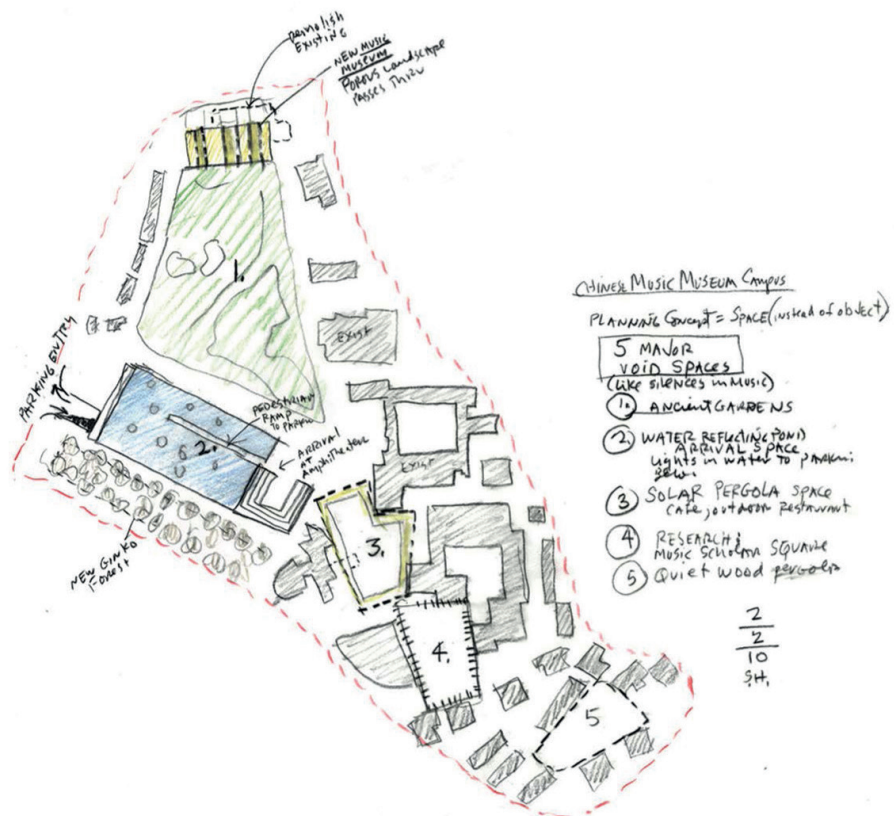 Demolish
EXISTING
NEW MUSIC
MUSEUM
POROUS Landscape
PASSES THRU
1.
EXIST
PARKING ENTRY
PEDESTRIAN
RAMP
TO PARKING
2.
ARRIVAL
AT
Amphitheater
EXIST
NEW GINKO
Forest
3.
4.
5
CHINESE MUSIC MUSEUM CAMPUS
PLANNING Concept = SPACE (instead of object)
5 MAJOR
VOID SPACES
(like silences in Music)
1. ANCIENT GARDENS
2 WATER REFLECTING POND
ARRIVAL SPACE
lights in water to parking
below
3 SOLAR PERGOLA SPACE
CAFE, outdoor restaurant
4 RESEARCH &
MUSIC SCHOLAR SQUARE
5 Quiet wood pergola
2
2
10
S.H.